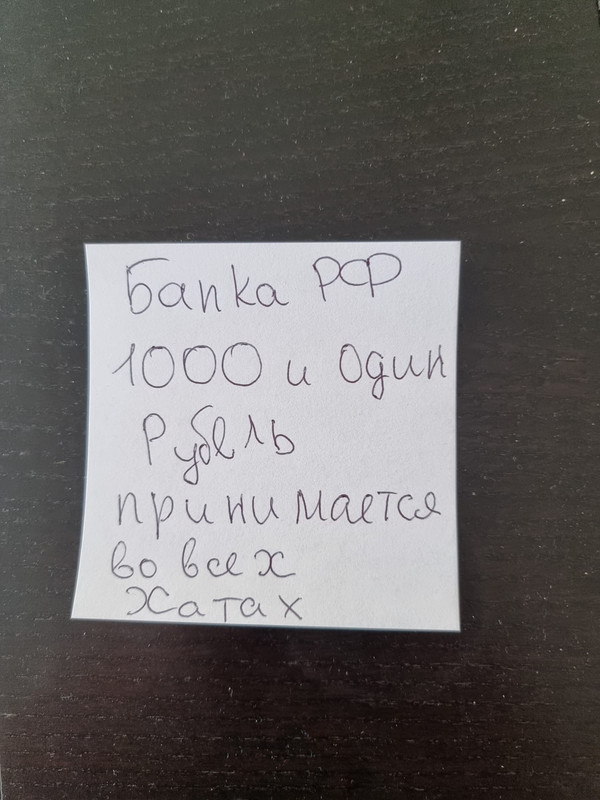 Банка РФ
1000 и один
Рубель
принимается
во всех
хатах